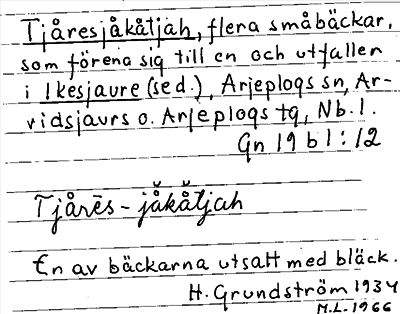 Tjåresjåkåtjah, flera småbäckar,
som förena sig till en och utfallen
i Ikesjaure (se d.), Arjeplogs sn, Ar-
vidsjaurs o. Arjeplogs tg, Nb. l.
Gn 19 b 1:12
Tjårēs-jå̆kå̆tjah
En av bäckarna utsatt med bläck.
H. Grundström 1934
M.L. 1966